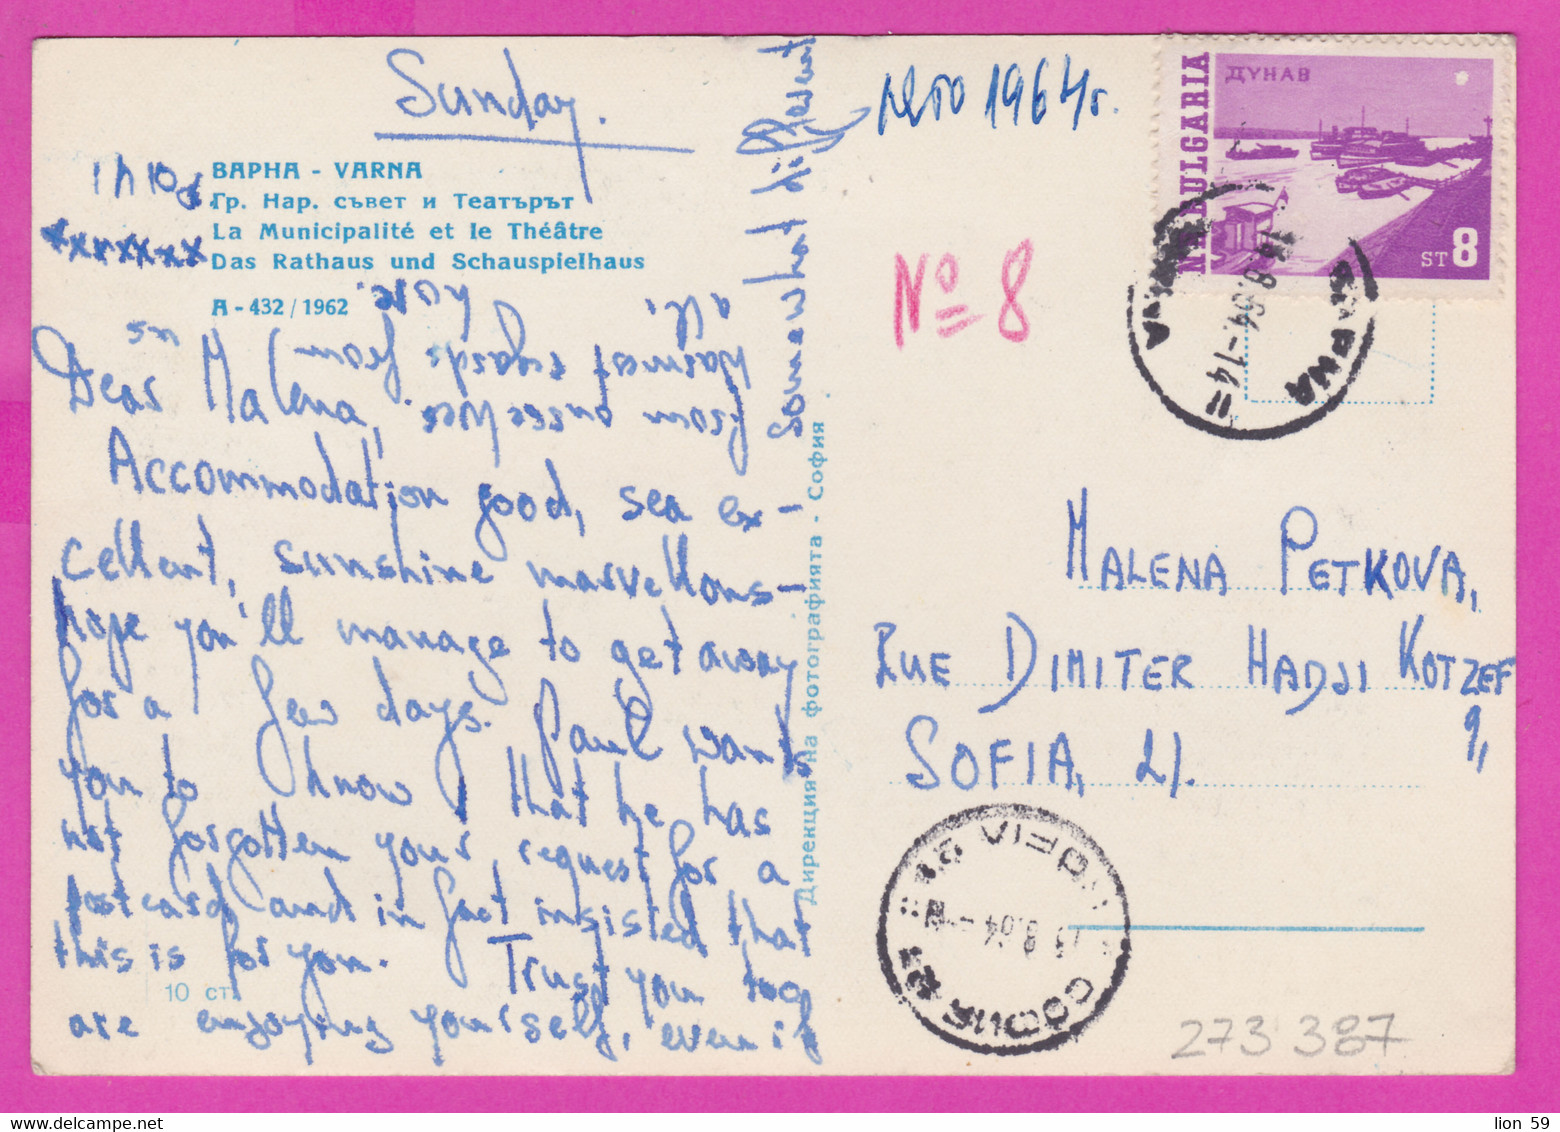 Sunday.
ВАРНА - VARNA
Гр. Нар. съвет и Театърът
La Municipalité et le Théâtre
Das Rathaus und Schauspielhaus
А - 432 / 1962
Dear Malena,
Accommodation good, sea ex-
cellent, sunshine marvellous -
hope you'll manage to get away
for a few days. Paul wants
you to know that he has
not forgotten your request for a
postcard and in fact insisted that
this is for you. Trust you too
are enjoying yourself, even if
somewhat different
from ourselves.
Warmest regards from
us all.
xxxxxxx
10 ст.
Дирекция на фотографията - София
лято 1964г.
№ 8
ДУНАВ
NR BULGARIA
ST 8
ВАРНА
VARNA
13.8.64.-14
MALENA PETKOVA,
RUE DIMITER HADJI KOTZEF
9,
SOFIA, 21.
СОФИЯ 21
SOFIA
13.8.64
273 387
lion 59